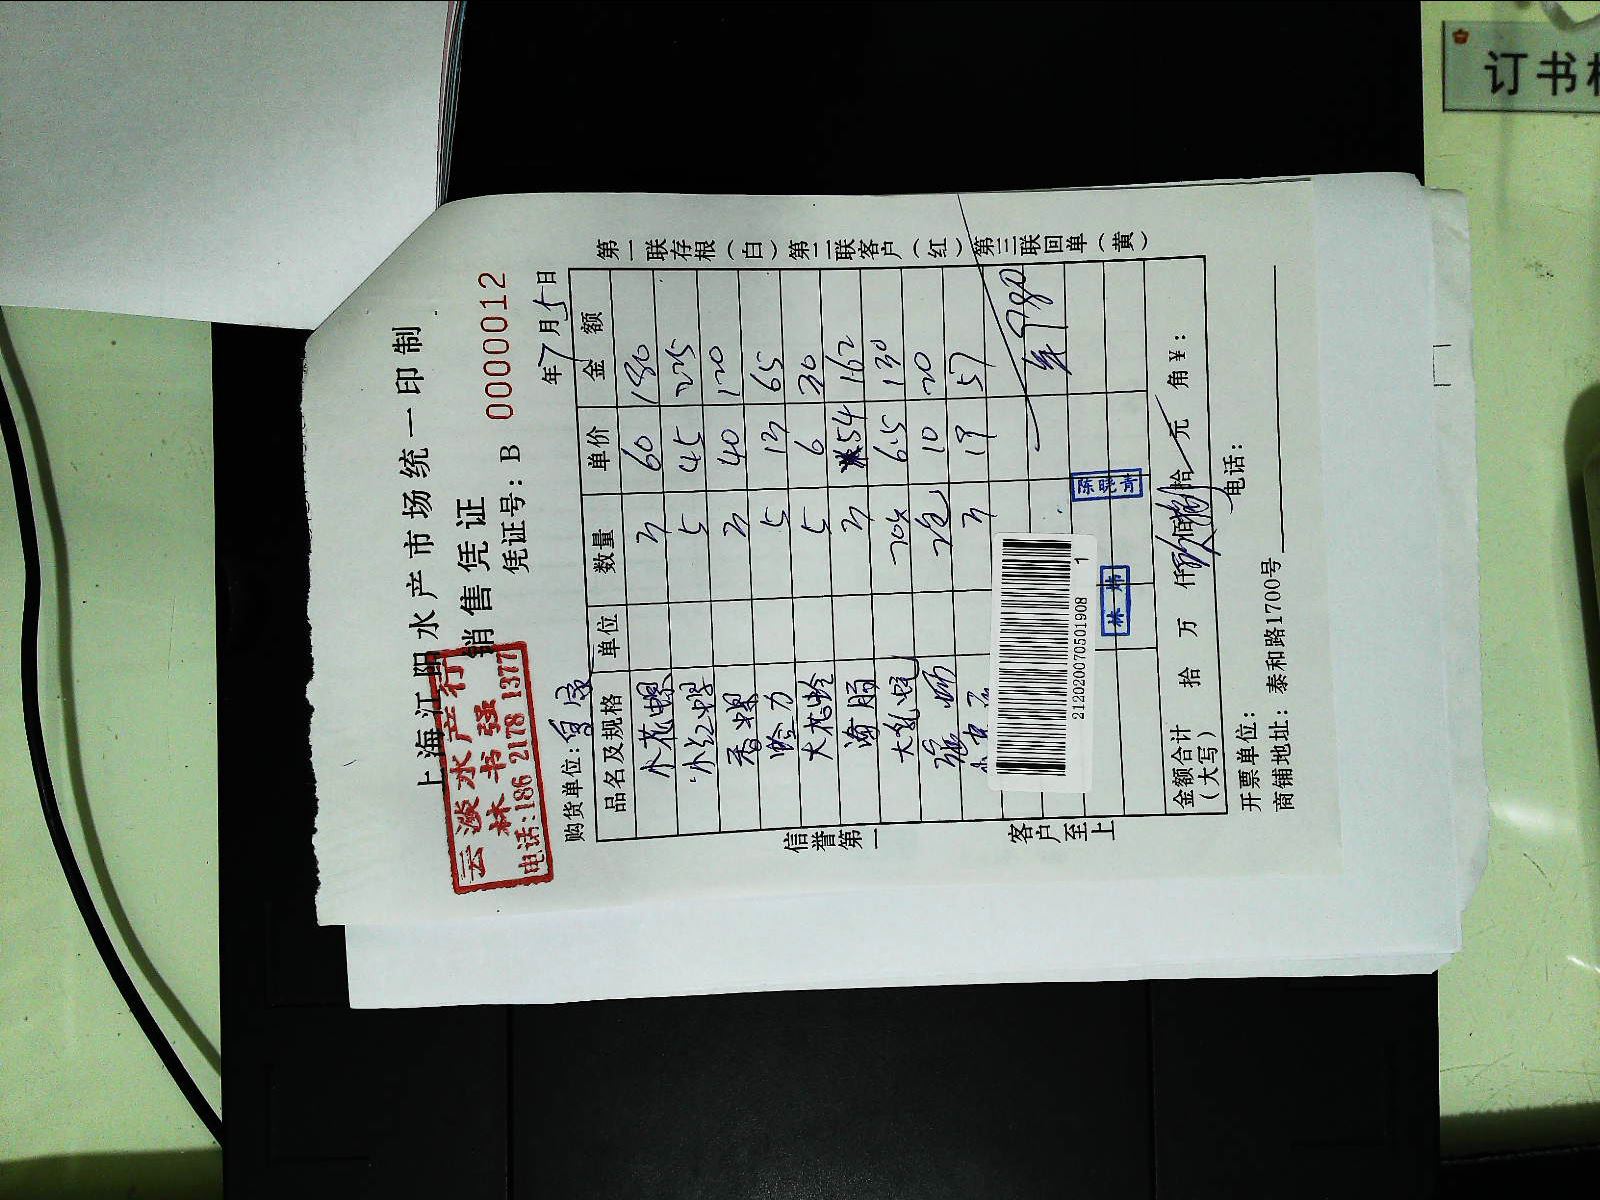 上海江阳水产市场统一印制
销售凭证
凭证号: B 0000012
云淡水产行
林书强
电话:186 2178 1377
购货单位:
年7月5日
品名及规格 单位 数量 单价 金额
小花螺 3 60 180
小红螺 5 45 225
香螺 3 40 120
蛏子 5 13 65
大花蛤 5 6 30
海肠 3 54 162
6.5 130
10 20
3 19 57
980
212020070501908 1
陈晓青
林炜
金额合计
(大写) 拾 万 仟 佰 拾 元 角 ¥:
开票单位: 电话:
商铺地址: 泰和路1700号
信誉第一
客户至上
第一联存根(白) 第二联客户(红) 第三联回单(黄)
订书机